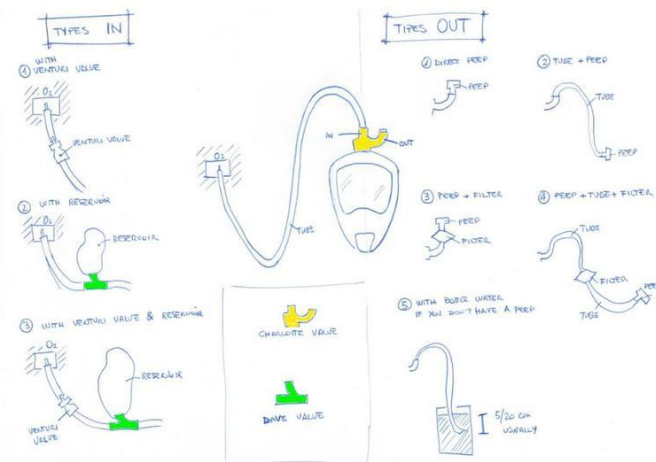 TYPES IN
① WITH
VENTURI VALVE
O₂
VENTURI VALVE
② WITH RESERVOIR
O₂
RESERVOIR
③ WITH VENTURI VALVE & RESERVOIR
O₂
RESERVOIR
VENTURI
VALVE
O₂
IN
OUT
TUBE
CHARLOTTE VALVE
DAVE VALVE
TIPES OUT
① DIRECT PEEP
PEEP
② TUBE + PEEP
TUBE
PEEP
③ PEEP + FILTER
PEEP
FILTER
④ PEEP + TUBE + FILTER
TUBE
FILTER
TUBE
⑤ WITH BOTTLE WATER
IF YOU DON'T HAVE A PEEP
5/20 cm
USUALLY